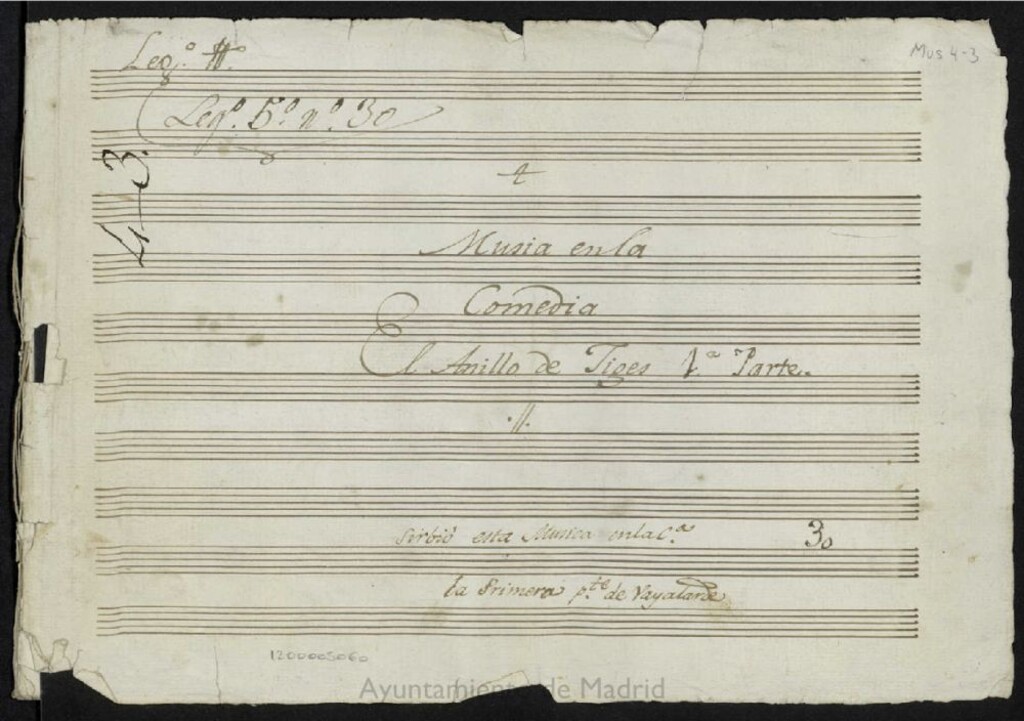 Mus 4-3
Leg.º
Leg.º 5.º n.º 30
4-3.
Musia en la
Comedia
El Anillo de Tiges 1.ª Parte.
Sirbió esta Musica en la C.ª
30
la Primera p.te de Vayalarde
1200005060
Ayuntamiento de Madrid